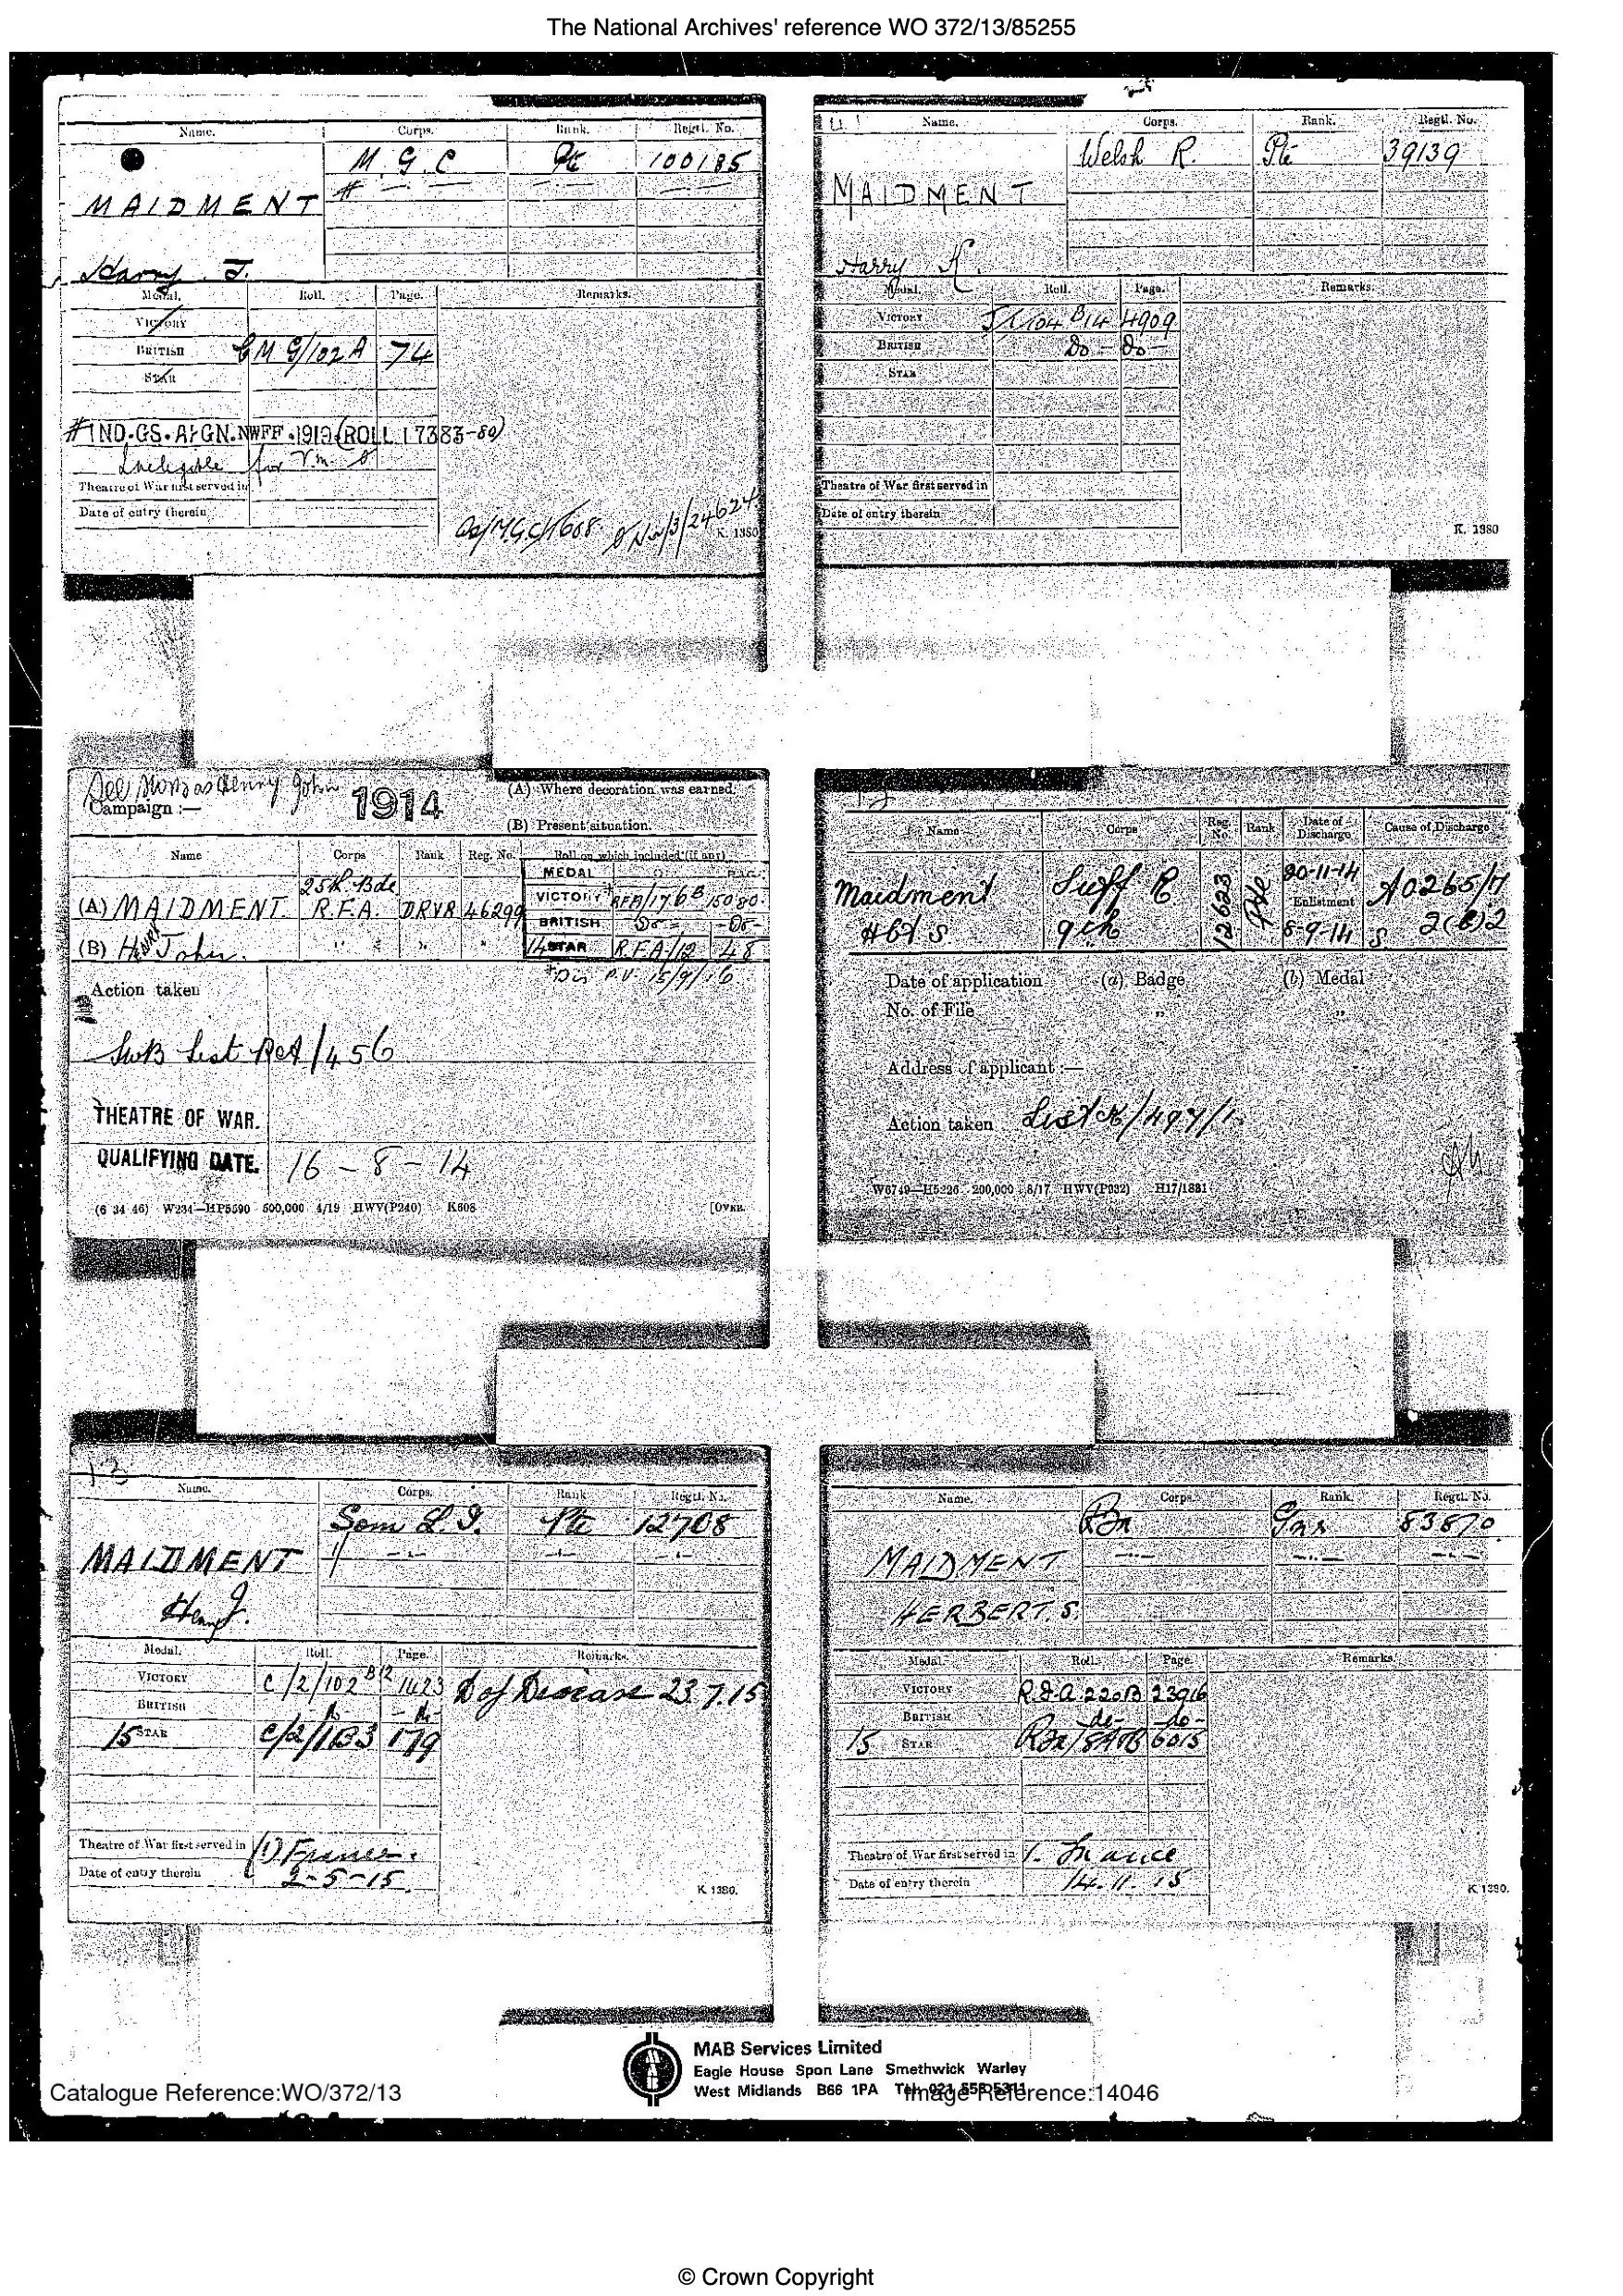 The National Archives' reference WO 372/13/85255
Name. Corps. Rank. Regtl. No.
M. G. C Pte 100185
MAIDMENT # — · — — · — — · —
Harry J.
Medal. Roll. Page. Remarks.
VICTORY
BRITISH MG/102A 74
STAR
# IND. GS. AFGN. NWFF. 1919 (ROLL 17383-89)
Ineligible for V.m.
Theatre of War first served in
Date of entry therein
K. 1380
Name. Corps. Rank. Regtl. No.
Welsh R. Pte 39139
MAIDMENT
Harry K.
Medal. Roll. Page. Remarks.
VICTORY J/1/104 B14 4909
BRITISH Do — Do —
STAR
Theatre of War first served in
Date of entry therein
K. 1380
See Morris as Henry John
Campaign :— 1914 (A) Where decoration was earned.
(B) Present situation.
Name Corps Rank Reg. No. Roll on which included (if any)
MEDAL
25th Bde VICTORY * RFA/176B 15080.
(A) MAIDMENT R.F.A. DRVR 46299 BRITISH Do — — Do —
(B) Henry John. " " " 14 STAR R.F.A/12 48
* Dis P.V. 15/9/16.
Action taken
SWB List RA/456
THEATRE OF WAR.
QUALIFYING DATE. 16 – 8 – 14
(6 34 46) W234—HP5590 500,000 4/19 HWV(P240) K608 [OVER.
Name Corps Reg. No. Rank Date of Discharge Cause of Discharge
Maidment Suff R 12623 Pte 20-11-14 A0265/17
Enlistment
9th 5-9-14 2(b)2
Date of application (a) Badge (b) Medal
No. of File " "
Address of applicant :—
Action taken List
W6749—H5226 200,000 8/17 HWV(P932) H17/1881
13
Name. Corps. Rank. Regtl. No.
Som L.I. Pte 12708
MAIDMENT // — · — — · — — · —
Henry J.
Medal. Roll. Page. Remarks.
VICTORY C/2/102 B12 1423 D of Disease 23.7.15
BRITISH Do — Do —
15 STAR C/2/1B3 179
Theatre of War first served in (1) France.
Date of entry therein 2-5-15.
K. 1380.
Name. Corps. Rank. Regtl. No.
RFA Gnr 83870
MAIDMENT — · · — — · · — — · —
HERBERT. S.
Medal. Roll. Page. Remarks.
VICTORY RFA 220B 23916
BRITISH — do — — do —
15 STAR RFA/ 6015
Theatre of War first served in 1. France
Date of entry therein 14. 11. 15
K. 1380.
MAB Services Limited
Eagle House Spon Lane Smethwick Warley
West Midlands B66 1PA Tel: 021 553 5311
Catalogue Reference:WO/372/13 Image Reference:14046
© Crown Copyright